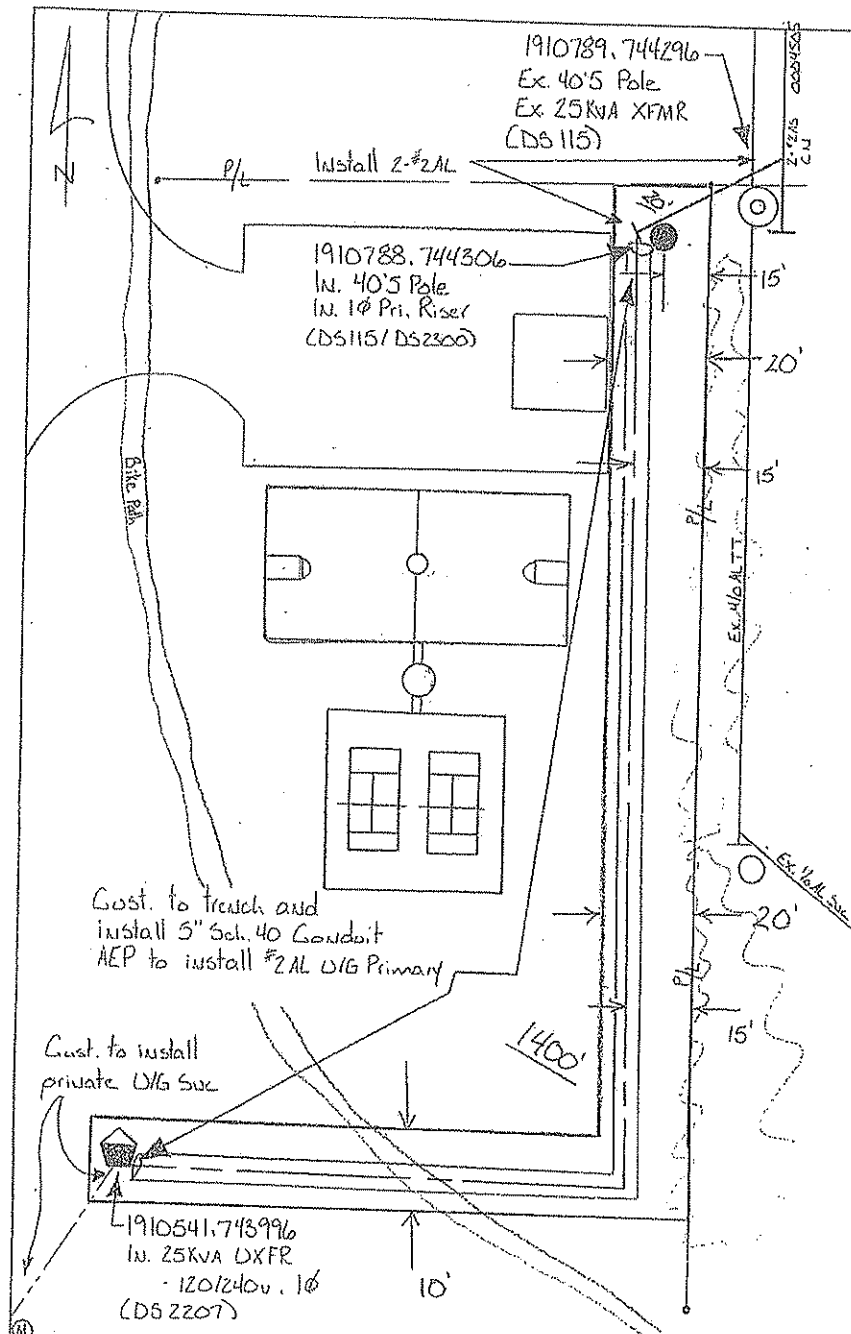 1910789.744296
Ex. 40'5 Pole
Ex. 25KVA XFMR
(DS 115)
0004505
N
P/L
Install 2-#2AL
10'
1910788.744306
IN. 40'5 Pole
IN. 1Ø Pri. Riser
(DS115/DS2300)
15'
20'
15'
Bike Path
P/L
Ex. 4/0 AL TT
Ex. 1/0 AL Svc
Cust. to trench and
install 5" Sch. 40 Conduit
AEP to install #2 AL U/G Primary
20'
P/L
15'
1400'
Cust. to install
private U/G Svc
1910541.743996
IN. 25KVA UXFR
- 120/240v. 1Ø
(DS 2207)
10'
M